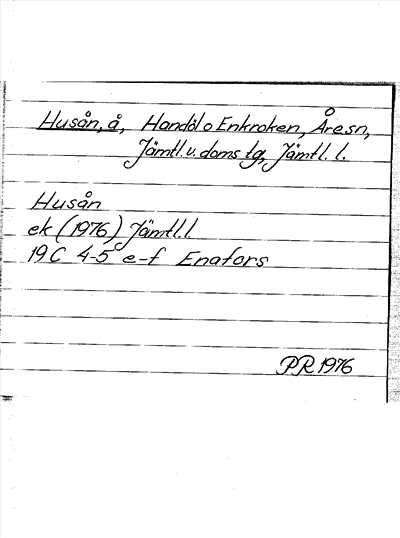 Husån, å, Handöl o Enkroken, Åre sn,
Jämtl. v. doms tg, Jämtl. l.
Husån
ek (1976) Jämtl. l
19C 4-5 e-f Enafors
PR 1976